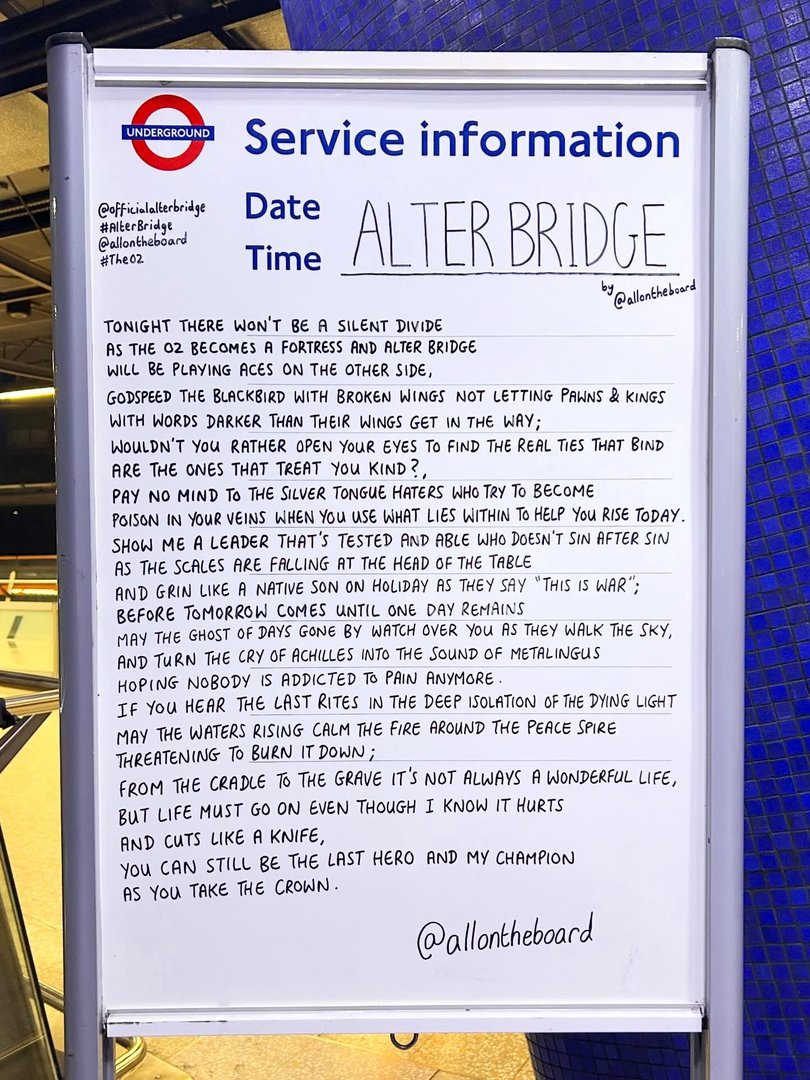 UNDERGROUND
Service information
@officialalterbridge
#AlterBridge
@allontheboard
#TheO2
Date
Time
ALTER BRIDGE
by @allontheboard
TONIGHT THERE WON'T BE A SILENT DIVIDE
AS THE O2 BECOMES A FORTRESS AND ALTER BRIDGE
WILL BE PLAYING ACES ON THE OTHER SIDE,
GODSPEED THE BLACKBIRD WITH BROKEN WINGS NOT LETTING PAWNS & KINGS
WITH WORDS DARKER THAN THEIR WINGS GET IN THE WAY;
WOULDN'T YOU RATHER OPEN YOUR EYES TO FIND THE REAL TIES THAT BIND
ARE THE ONES THAT TREAT YOU KIND?,
PAY NO MIND TO THE SILVER TONGUE HATERS WHO TRY TO BECOME
POISON IN YOUR VEINS WHEN YOU USE WHAT LIES WITHIN TO HELP YOU RISE TODAY.
SHOW ME A LEADER THAT'S TESTED AND ABLE WHO DOESN'T SIN AFTER SIN
AS THE SCALES ARE FALLING AT THE HEAD OF THE TABLE
AND GRIN LIKE A NATIVE SON ON HOLIDAY AS THEY SAY "THIS IS WAR";
BEFORE TOMORROW COMES UNTIL ONE DAY REMAINS
MAY THE GHOST OF DAYS GONE BY WATCH OVER YOU AS THEY WALK THE SKY,
AND TURN THE CRY OF ACHILLES INTO THE SOUND OF METALINGUS
HOPING NOBODY IS ADDICTED TO PAIN ANYMORE.
IF YOU HEAR THE LAST RITES IN THE DEEP ISOLATION OF THE DYING LIGHT
MAY THE WATERS RISING CALM THE FIRE AROUND THE PEACE SPIRE
THREATENING TO BURN IT DOWN;
FROM THE CRADLE TO THE GRAVE IT'S NOT ALWAYS A WONDERFUL LIFE,
BUT LIFE MUST GO ON EVEN THOUGH I KNOW IT HURTS
AND CUTS LIKE A KNIFE,
YOU CAN STILL BE THE LAST HERO AND MY CHAMPION
AS YOU TAKE THE CROWN.
@allontheboard